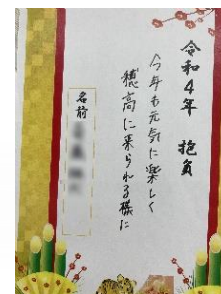 令和4年 抱負
今年も元気に楽しく
穂高に来られる様に
名前